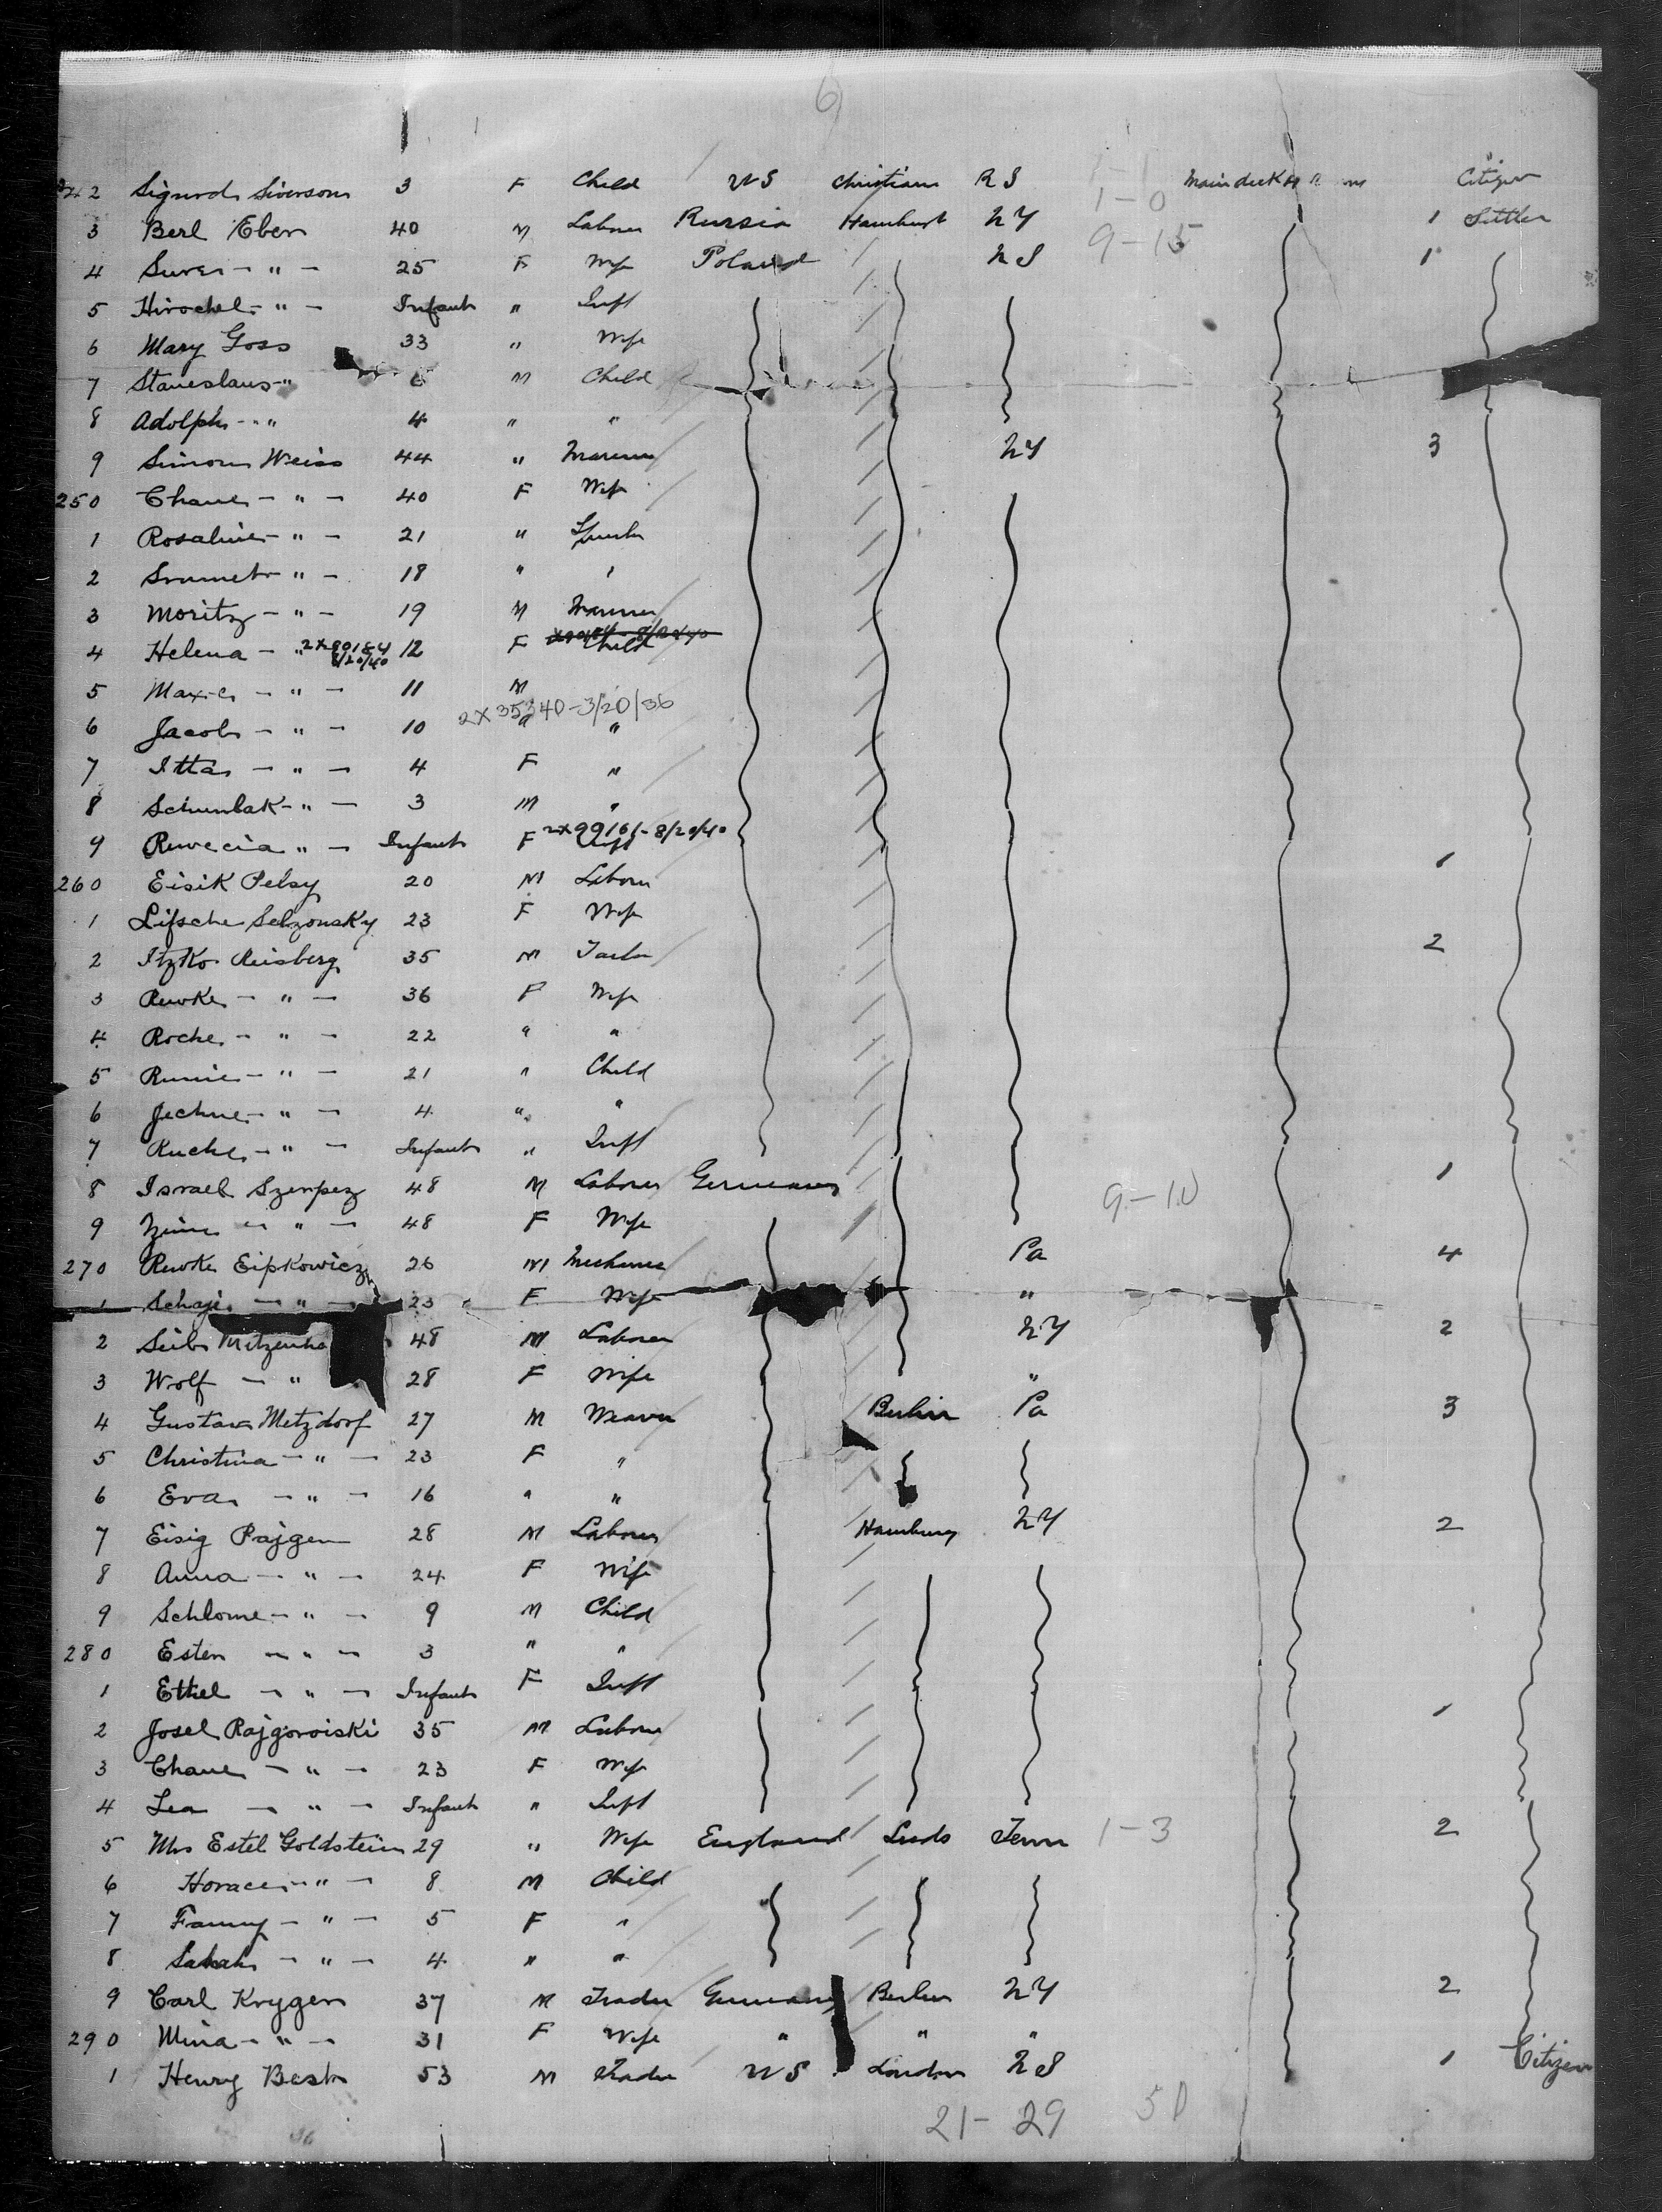 6
242 Sigurd Siverson 3 F Child U S Christiana R I Main deck Citizen
1-0
3 Berl Eber 40 M Labour Russia Hamburg N Y 1 Settler
9-15
4 25 F Wife Poland 1
5 Hirschel " Infant " Inft
6 Mary Goss 33 " Wife
7 Staneslaus " 6 M Child
8 Adolph " 4 " "
9 Simon Weiss 44 " N Y 3
250 Chane " 40 F Wife
1 Rosaline " 21 "
2 " 18 "
3 Moritz " 19 M
4 Helena " 2X90184 8/20/40 12 F Child
5 Max " 11 M
2X35340-3/20/36
6 Jacob " 10 " "
7 Itta " 4 F "
8 Schumlak " 3 M "
9 " Infant F 2X99161-8/20/40 Inft
260 Eisik Pelsy 20 M Labour 1
1 Lifsche Selzonsky 23 F Wife
2 Itzko Reisberg 35 M Tailor 2
3 Rewke " 36 F Wife
4 Roche " 22 " "
5 " 21 " Child
6 Jechne " 4 " "
7 Ruche " Infant " Inft
8 Israel Szerpez 48 M Labour Germany 1
9-10
9 " 48 F Wife
270 Rewke Eipkowicz 26 M Mechanic Pa 4
1 Schaje " 23 F Wife "
2 48 M Labourer N Y 2
3 Wolf " 28 F Wife "
4 Gustav Metzdorf 27 M Weaver Berlin Pa 3
5 Christina " 23 F "
6 Eva " 16 " "
7 Eisig Rajgen 28 M Labour Hamburg N Y 2
8 Anna " 24 F Wife
9 Schlome " 9 M Child
280 Ester " 3 " "
1 Ethel " Infant F Inft
2 Josel Rajgoroiski 35 M Labour 1
3 Chane " 23 F Wife
4 Lea " Infant " Inft
5 Mrs Estel Goldstein 29 " Wife England Leeds Tenn 1-3 2
6 Horace " 8 M Child
7 Fanny " 5 F "
8 Sarah " 4 " "
9 Carl Krygen 37 M Trader Germany Berlin N Y 2
290 Mina " 31 F Wife " " "
1 Henry Best 53 M Trader U S London 1 Citizen
21-29